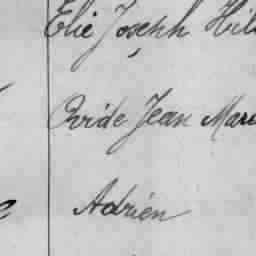 Elie Joseph Hil
Ovide Jean Mar
Adrien